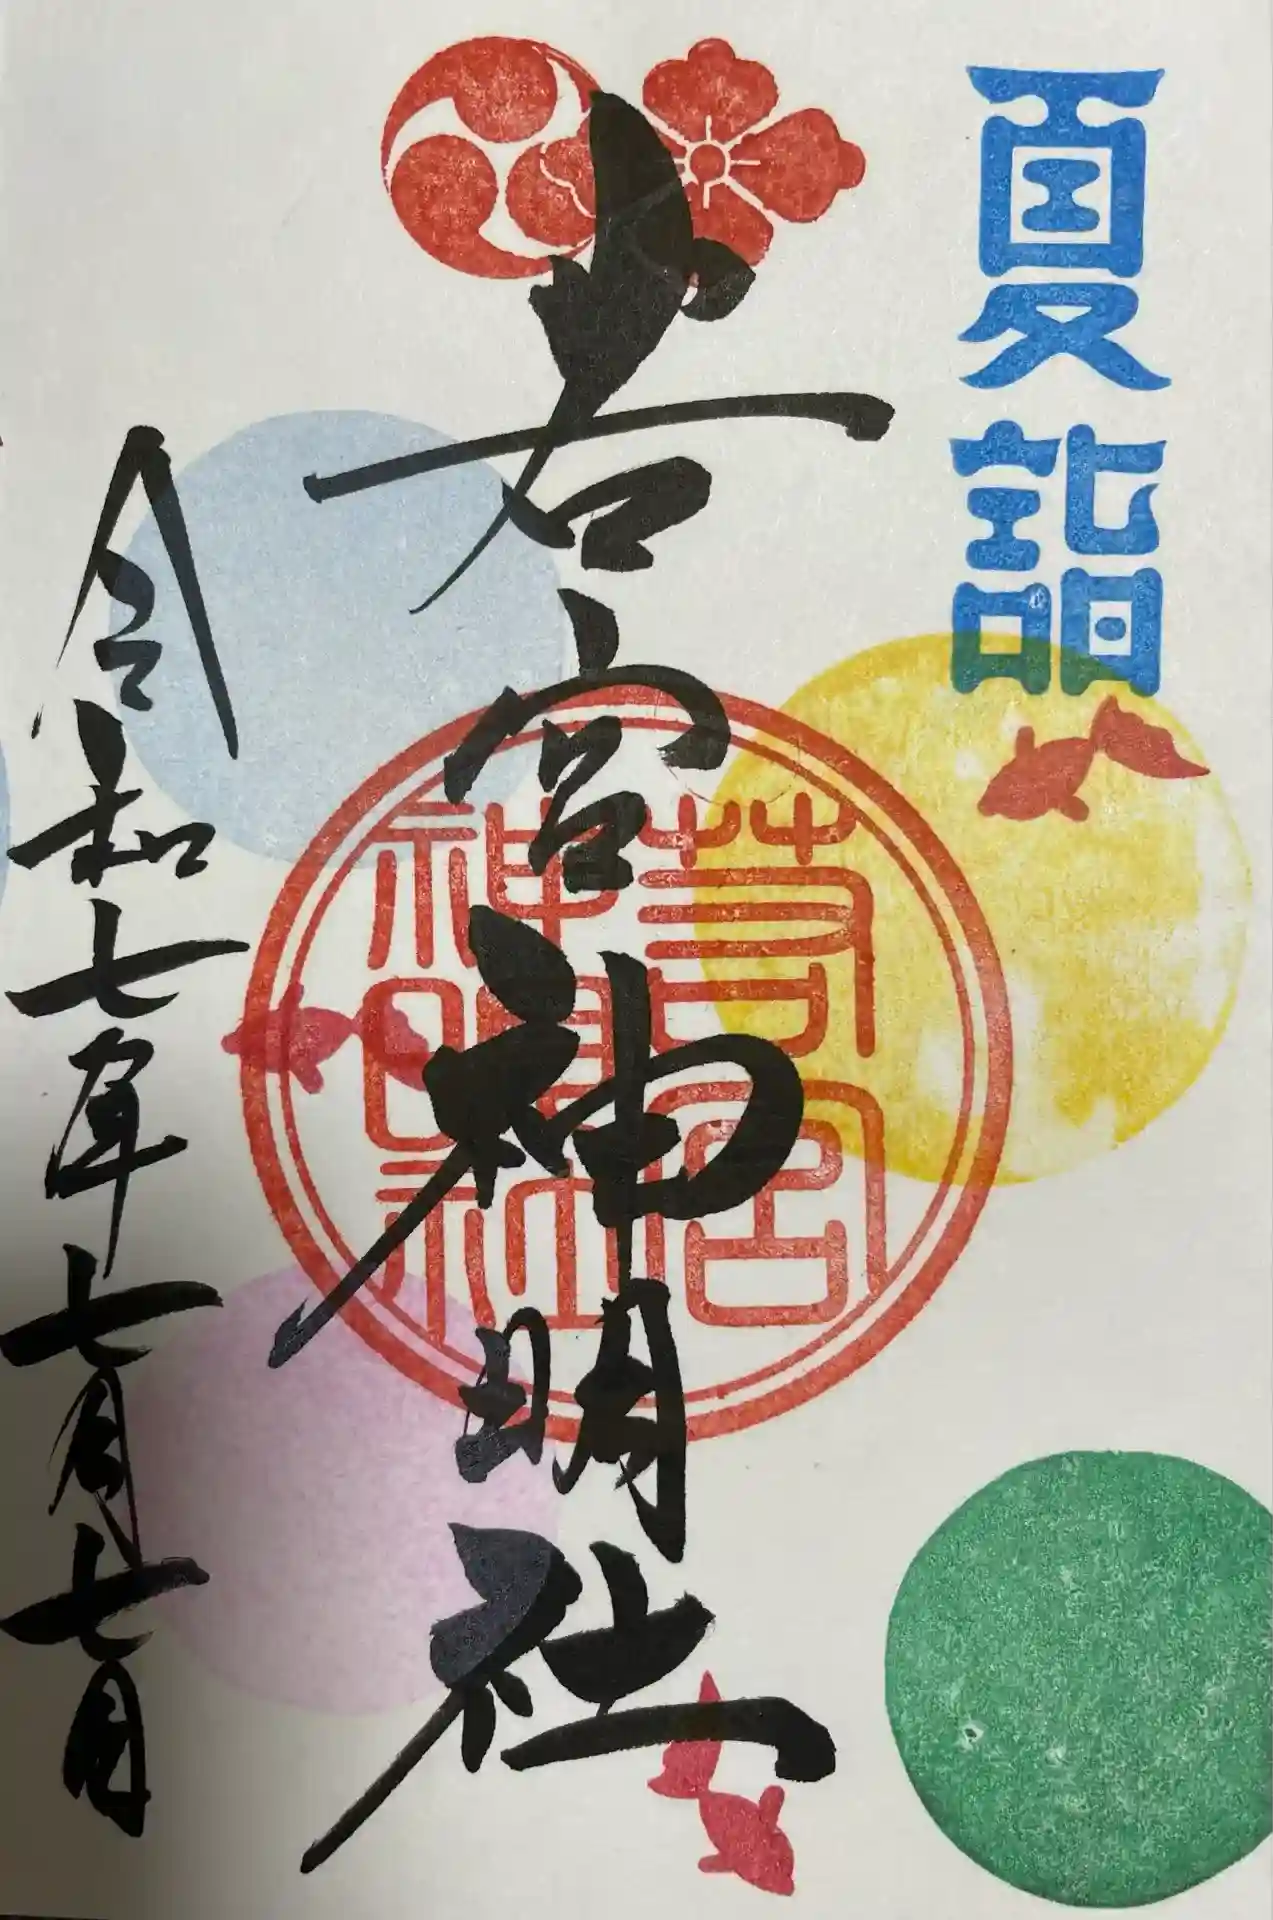 夏詣
若宮神明社
若宮
神明社
令和七年七月七日